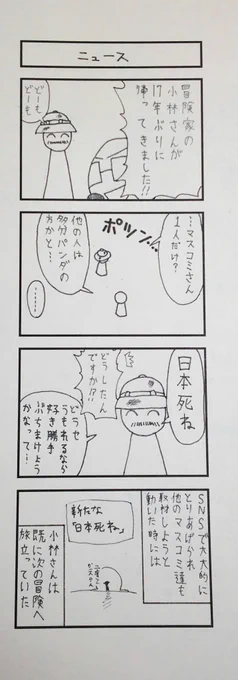 ニュース
冒険家の
小林さんが
17年ぶりに
帰ってきました!!
どーも
どーも
…マスコミさん
1人だけ?
ポツン…
他の人は
多分パンダの
方かと…
………
日本死ね
どうしたん
ですか!?
どうせ
うもれるなら
好き勝手
ぶちまけよう
かなって…
SNSで大々的に
とりあげられ
他のマスコミ達も
取材しようと
動いた時には
新たな
「日本死ね」
小林さんは
既に次の冒険へ
旅立っていた